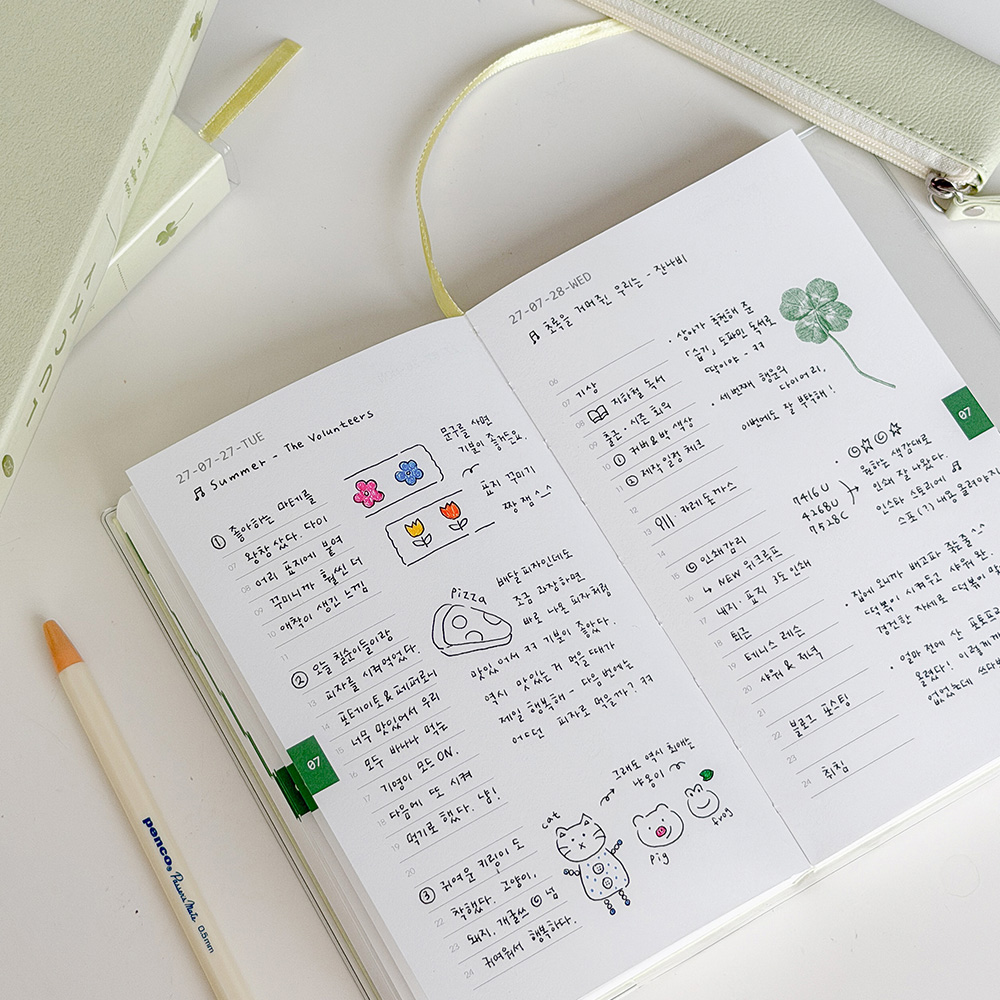 LUCKY
27-07-27-TUE
Summer - The Volunteers
① 좋아하는 마테를
왕창 샀다. 다이
어리 표지에 붙여
꾸미니까 훨씬 더
애착이 생긴 느낌
② 오늘 칠순이들이랑
피자를 시켜먹었다.
포테이토 & 페퍼로니
너무 맛있어서 우리
모두 바나나 먹는
기영이 모드 ON.
다음에 또 시켜
먹기로 했다. 냠!
③ 귀여운 키링이 도
착했다. 고양이,
돼지, 개글쓰 넘
귀여워서 행복하다.
07
08
09
10
11
13
14
15
16
17
18
19
20
22
23
24
문구를 사면
기분이 즐거든요.
표지 꾸미기
짱 잼 ^_^
Pizza
배달 피자인데도
조금 과장하면
바로 나온 피자처럼
맛있어서 ㅋㅋ 기분이 좋았다.
역시 맛있는 거 먹을 때가
제일 행복해 - 다음번에는
어떤 피자로 먹을까? ㅋㅋ
그래도 역시 최애는
냐옹이
cat
pig
frog
07
27-07-28-WED
초록을 거머쥔 우리는 - 잔나비
06
07 기상
08 지하철 독서
09 출근 · 시즌 회의
10 ① 커버&박 색상
11 ② 제작 일정 체크
12
13 카레돈까스
14
15 인쇄감리
16 ↳ NEW 워크루프
내지, 표지 3도 인쇄
17
18 퇴근
19 테니스 레슨
20 샤워 & 저녁
21
22 블로그 포스팅
23
24 취침
· 상아가 추천해 준
「습기」 도파민 독서로
딱이야 - ㅋㅋ
· 세 번째 행운의
다이어리,
이번에도 잘 부탁해!
7416U
4268U
7528C
원하는 색감대로
인쇄 잘 나왔다.
인스타 스토리에
스포(?) 해버림 올려야지
· 집에 오니까 배고파 죽는 줄 ^^
떡볶이 시켜두고 샤워 완.
경건한 자세로 떡볶이 맞
· 얼마 전에 산 포토프
올렸다! 이렇게
없었는데 쓰다
07
penco® PassersMate 0.5mm